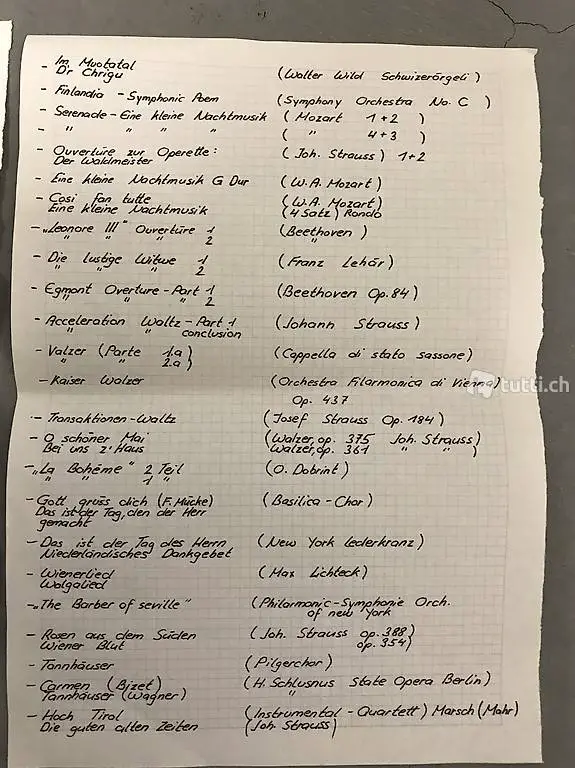 - Im Muotatal
D'r Chrigu (Walter Wild Schwizerörgeli)
- Finlandia - Symphonic Poem (Symphony Orchestra No. C)
- Serenade - Eine kleine Nachtmusik (Mozart 1+2)
- " " " " ( " 4+3)
- Ouvertüre zur Operette: (Joh. Strauss) 1+2
Der Waldmeister
- Eine kleine Nachtmusik G Dur (W.A. Mozart)
- Cosi fan tutte (W.A. Mozart)
Eine kleine Nachtmusik (4 Satz) Rondo
- „Leonore III" Ouvertüre 1 (Beethoven)
" " 2 "
- Die lustige Witwe 1 (Franz Lehár)
" " " 2
- Egmont Overture - Part 1 (Beethoven Op. 84)
" " " 2
- Acceleration Waltz - Part 1 (Johann Strauss)
" " conclusion
- Valzer (Parte 1.a) (Cappella di stato sassone)
" 2.a)
- Kaiser Walzer (Orchestra Filarmonica di Vienna)
Op. 437
- Transaktionen - Waltz (Josef Strauss Op. 184)
- O schöner Mai (Walzer, op. 375 Joh. Strauss)
Bei uns z' Haus Walzer, op. 361 " ")
- „La Bohème" 2 Teil (O. Dobrint)
" " 1 "
- Gott grüss dich (F. Mücke) (Basilica - Chor)
Das ist der Tag, den der Herr
gemacht
- Das ist der Tag des Herrn (New York Lederkranz)
Niederländisches Dankgebet
- Wienerlied (Max Lichteck)
Wolgalied
- „The Barber of seville" (Philarmonic - Symphonie Orch.
of new York
- Rosen aus dem Süden (Joh. Strauss op. 388)
Wiener Blut op. 354)
- Tannhäuser (Pilgerchor)
- Carmen (Bizet) (H. Schlusnus State Opera Berlin)
Tannhäuser (Wagner) "
- Hoch Tirol (Instrumental - Quartett) Marsch (Mahr)
Die guten alten Zeiten (Joh. Strauss)
tutti.ch